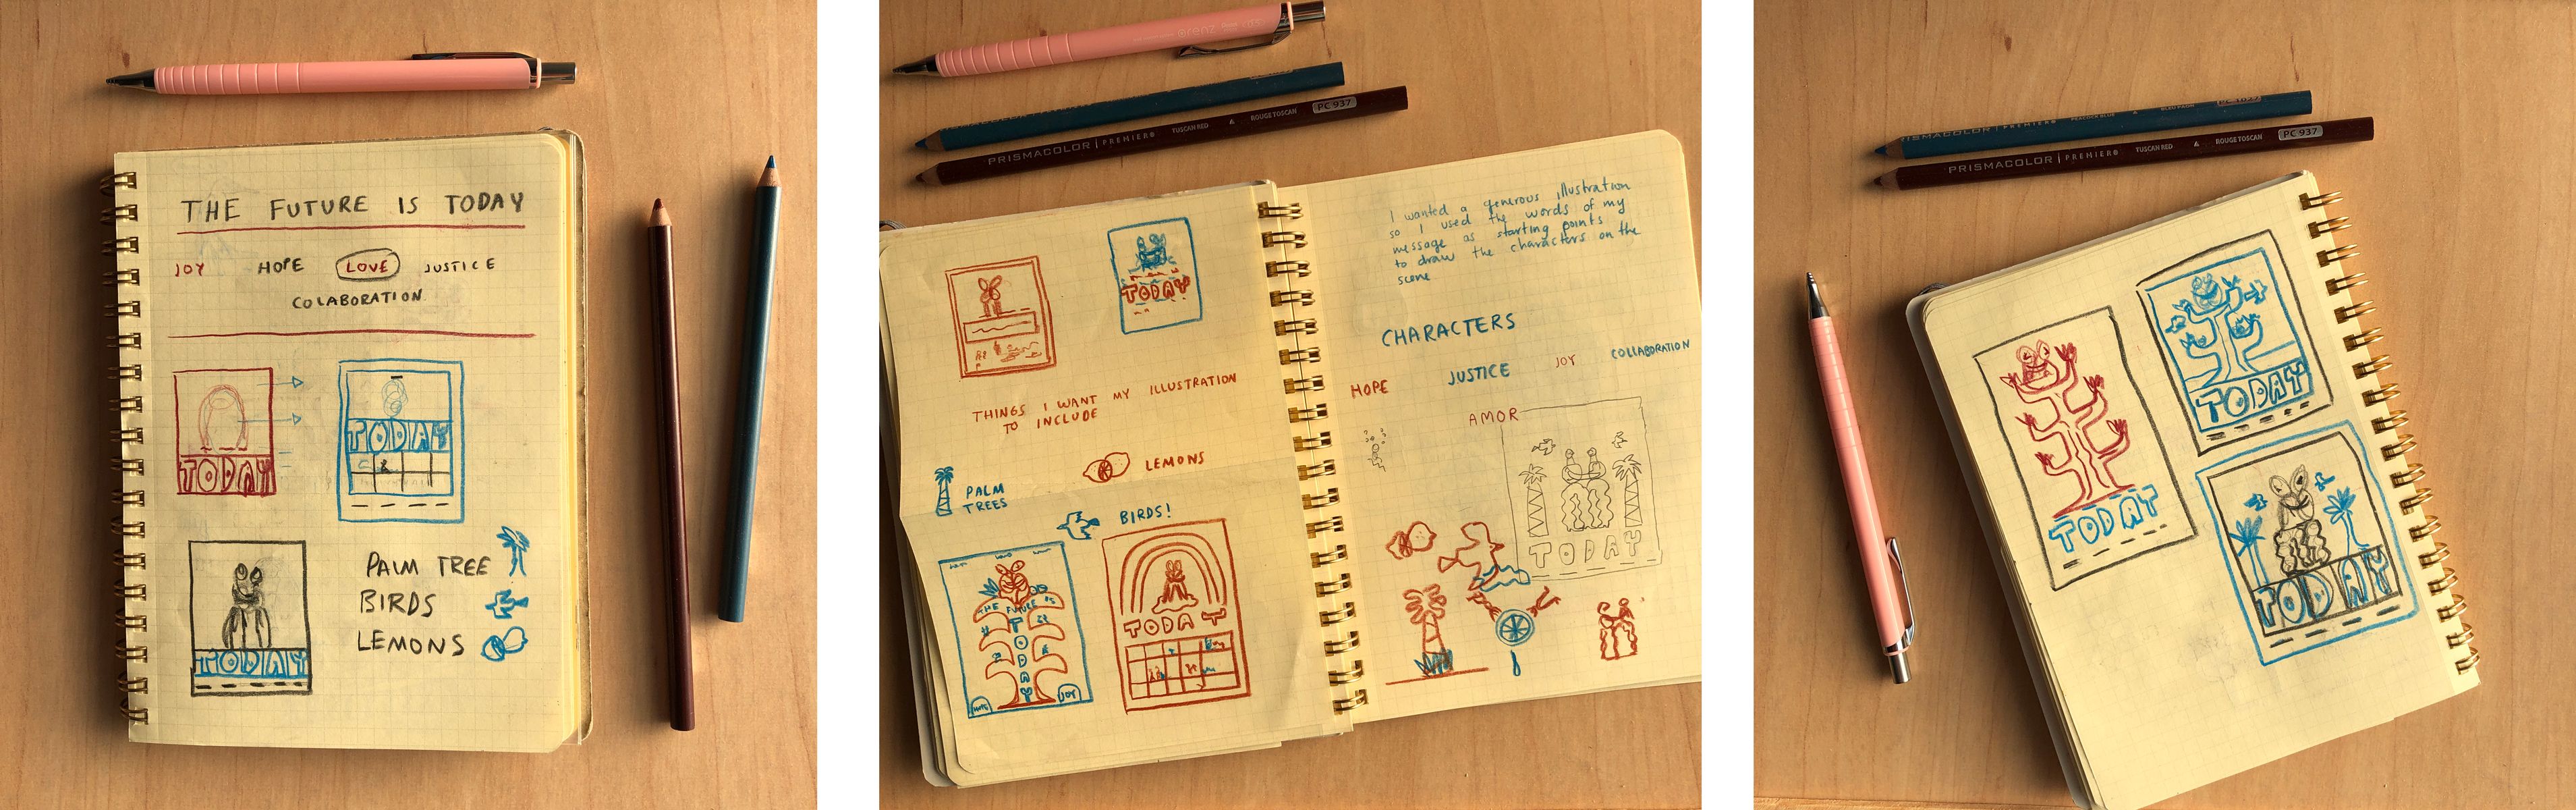 THE FUTURE IS TODAY
JOY HOPE LOVE JUSTICE
COLABORATION
TODAY
TODAY
PALM TREE
BIRDS
LEMONS
TODAY
orenz
PRISMACOLOR | PREMIER® TUSCAN RED & ROUGE TOSCAN PC 937
TODAY
THINGS I WANT MY ILLUSTRATION
TO INCLUDE
LEMONS
PALM
TREES
BIRDS!
THE FUTURE IS
TODAY
HOPE
JOY
TODAY
I wanted a generous illustration
so I used the words of my
message as starting points
to draw the characters on the
scene
CHARACTERS
HOPE JUSTICE JOY COLLABORATION
AMOR
TODAY
PRISMACOLOR | PREMIER® PEACOCK BLUE
PRISMACOLOR | PREMIER® TUSCAN RED & ROUGE TOSCAN PC 937
TODAY
TODAY
TODAY